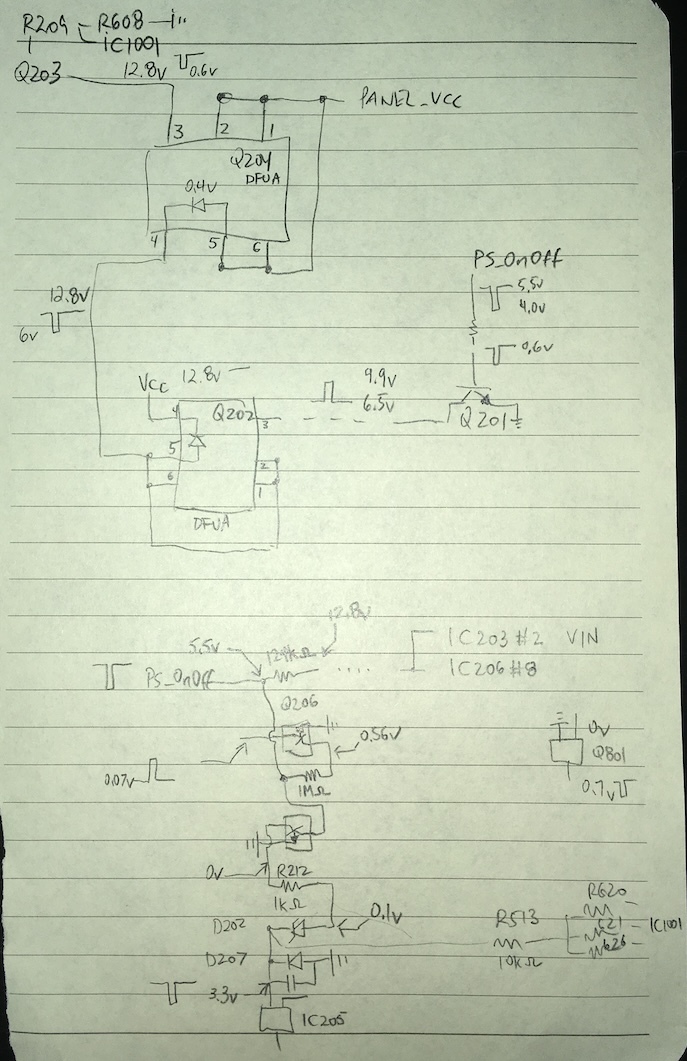 R209 - R608
IC1001
Q203 12.8v 0.6v
PANEL_VCC
3 2 1
Q204
DFUA
0.4v
4 5 6
PS_OnOff
5.5v
4.0v
12.8v
6v
0.6v
Vcc 12.8v
9.9v
6.5v
4 Q202 3
Q201
5
6 2
1
DFUA
12.8v
5.5v
IC203 #2 VIN
PS_OnOff IC206 #8
Q206
0.56v 0v
Q801
0.07v 1MΩ 0.7v
0v R212
1kΩ
R620
D202 0.1v R513 621 IC1001
626
D207 10KΩ
3.3v
IC205